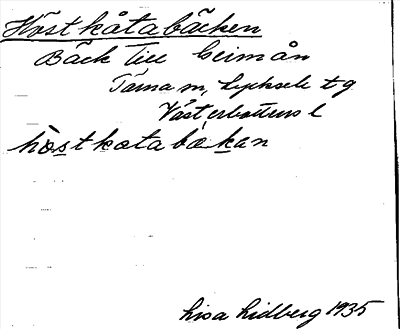 Höstkåtabäcken
Bäck till Geimån
Tärna m, Lycksele tg
Västerbottens l
hòstkatabækan
Lisa Lidberg 1935